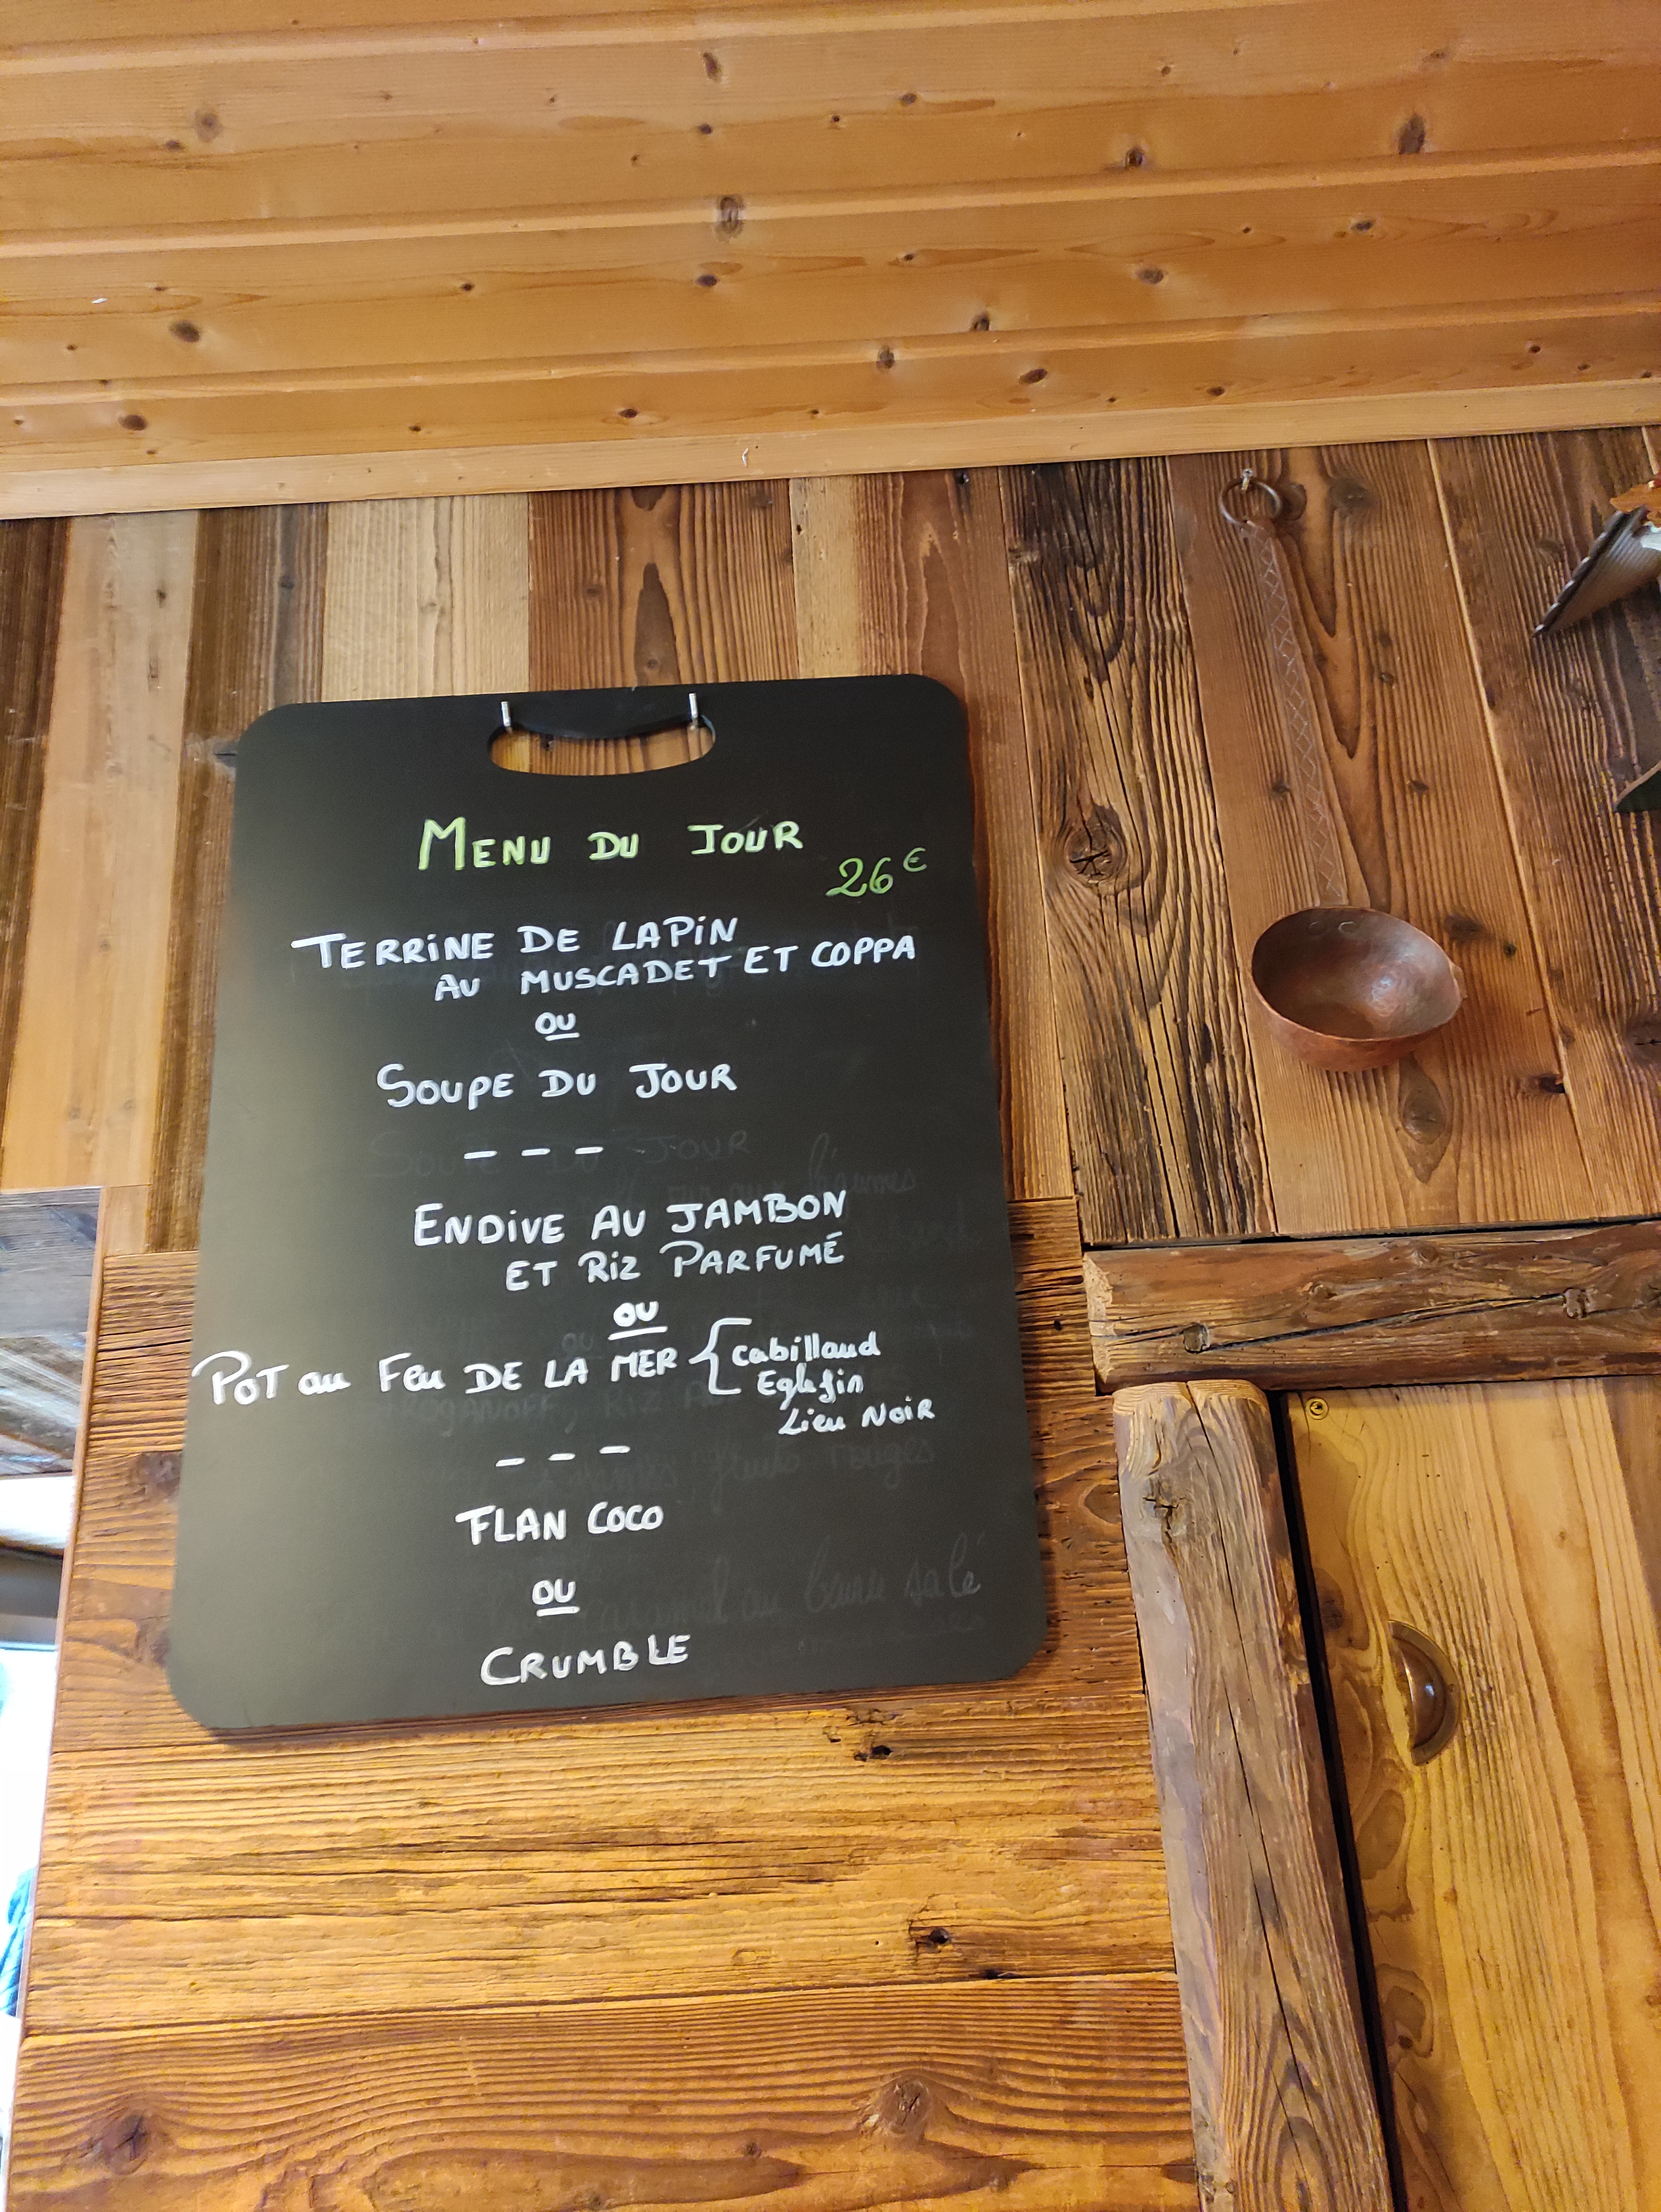 MENU DU JOUR
26€
TERRINE DE LAPIN
AU MUSCADET ET COPPA
OU
SOUPE DU JOUR
- - -
ENDIVE AU JAMBON
ET RIZ PARFUMÉ
OU
POT au Feu DE LA MER { Cabillaud
Eglefin
Lieu NOIR
- - -
FLAN COCO
OU
CRUMBLE